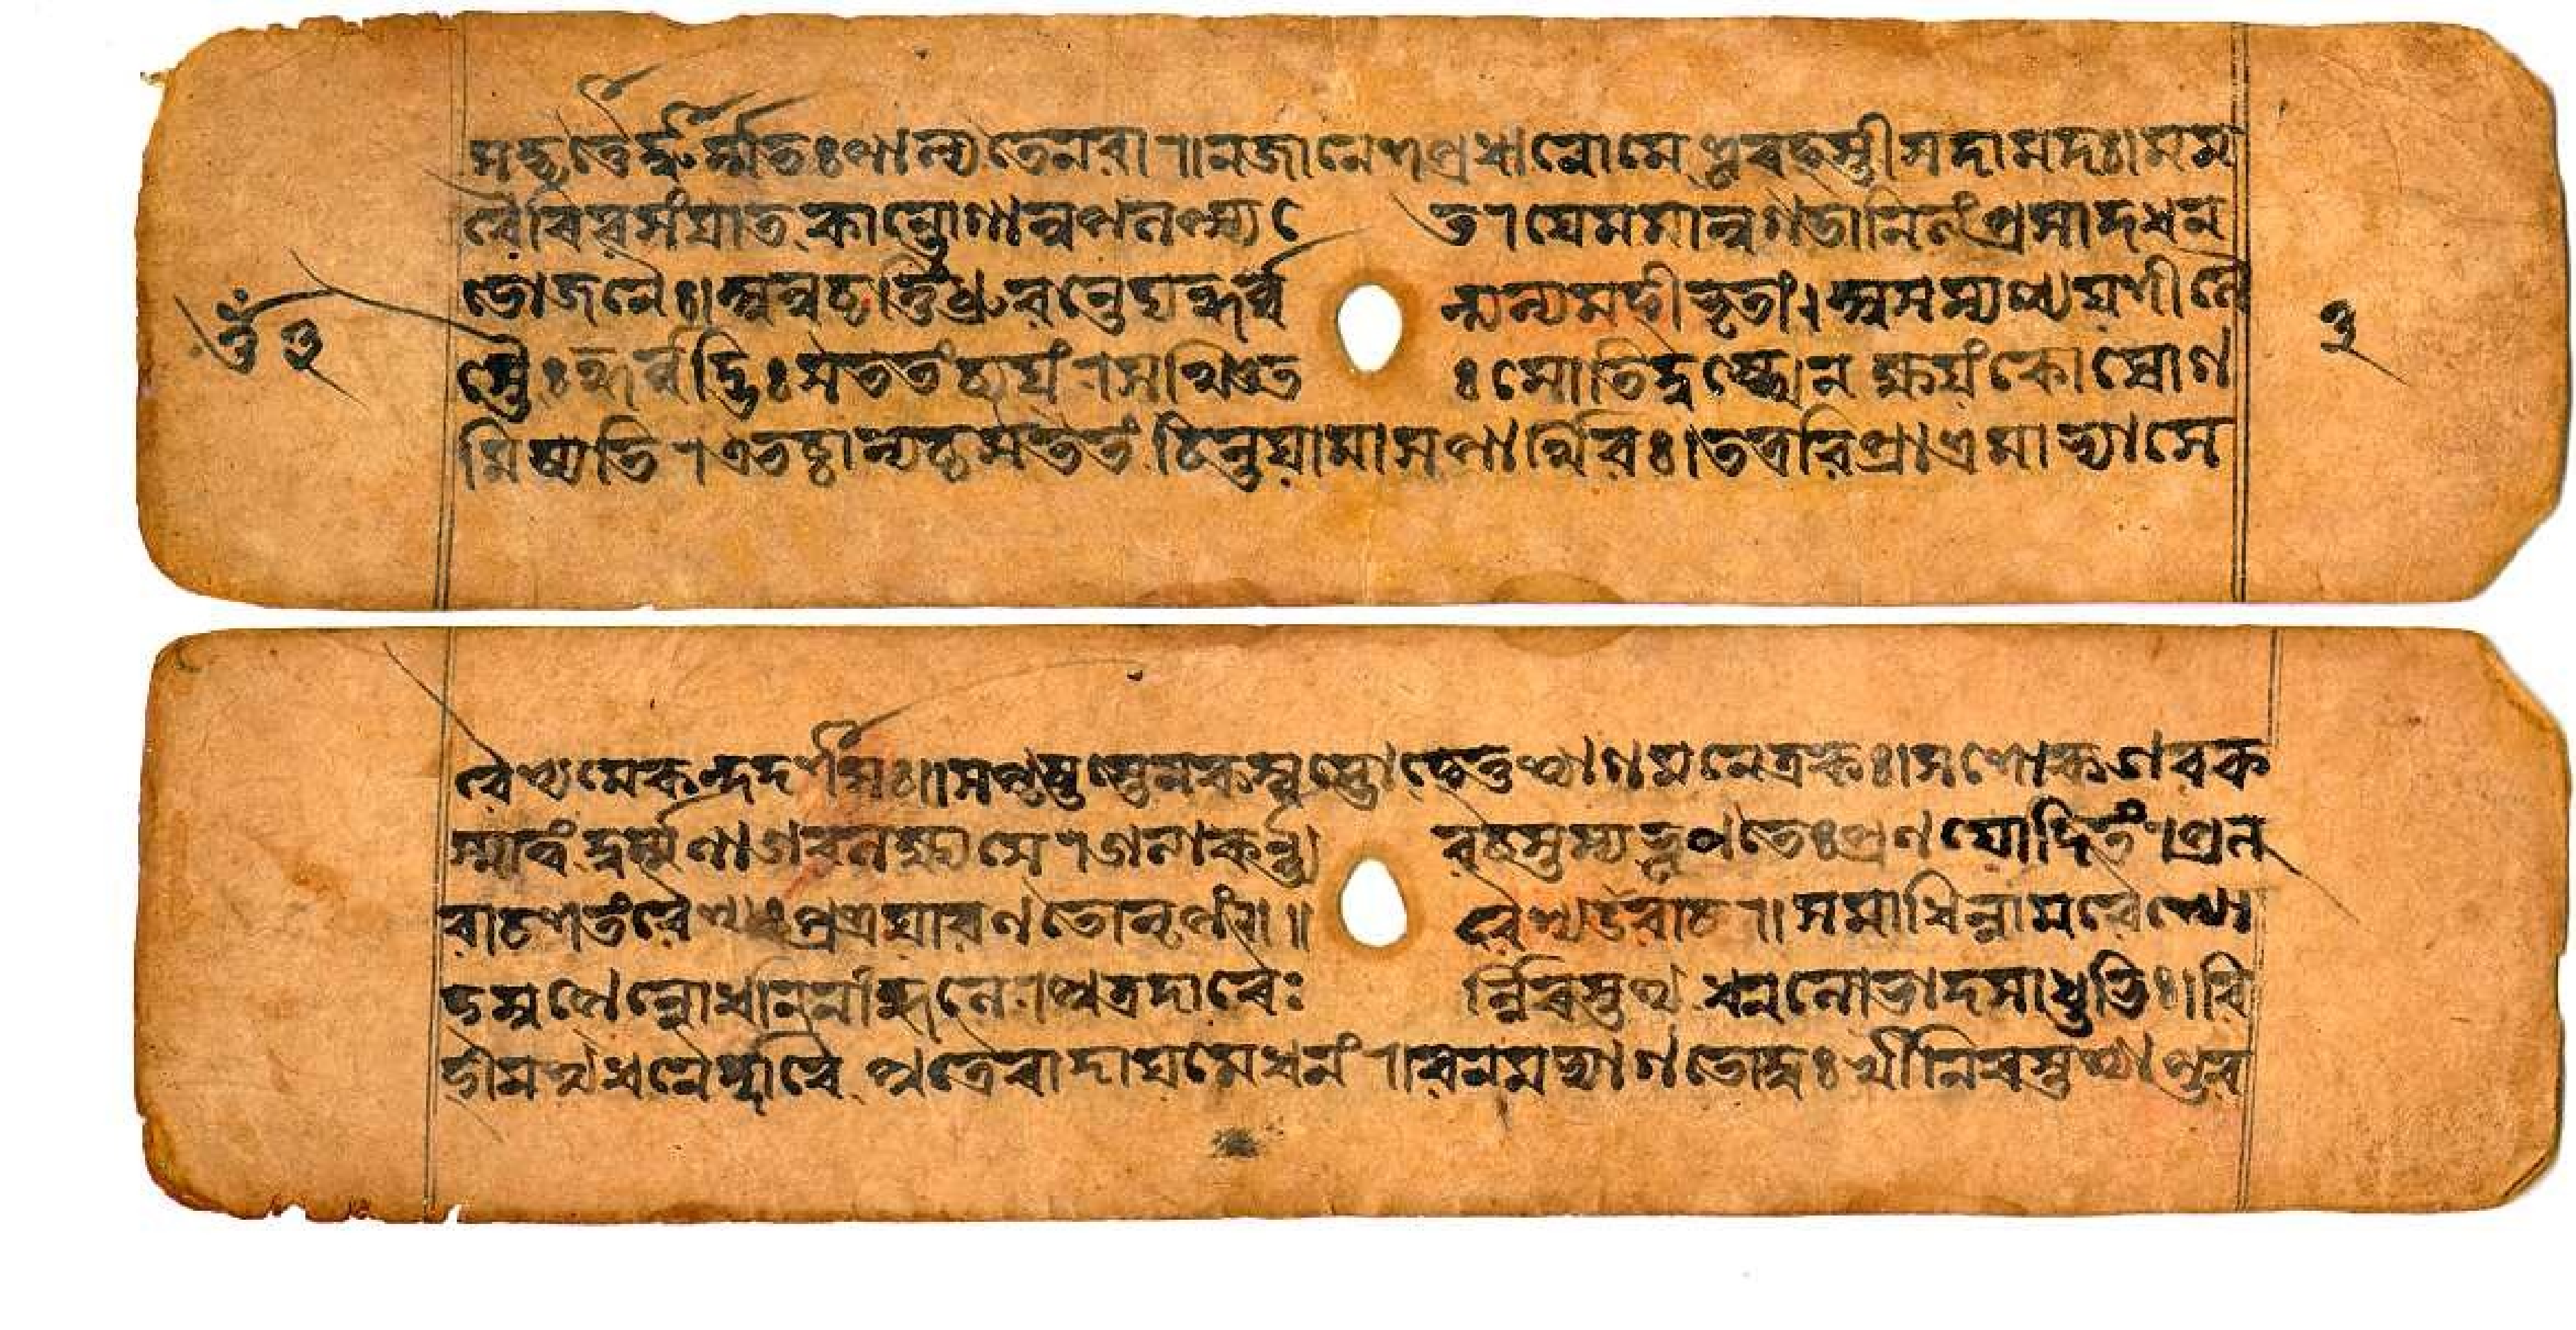 মদ্বৃত্তৈর্দ্ধর্ম্মতঃ পাল্যতে ন বা । ন জানে স প্রধানো মে শূৰহস্তী সদামদঃ । মম
বৈৰিবশং যাত কান্ভোগানুপলপ্স্যতে । যে মমানুগতা নিত্যং প্রসাদধন
ভোজনৈঃ । অনুবৃত্তিং ধ্রুবং তেদ্য কুর্ব্বন্ত্যন্যমহীভৃতাং । অসম্যগ্ব্যযশীলৈ
স্তৈঃ কুর্ব্বদ্ভিঃ সততং ব্যযং । সঞ্চিতঃ সোতিদুঃখেন ক্ষযং কোষো গ
মিষ্যতি । এতচ্চান্যচ্চ সততং চিন্তযামাস পার্থিবঃ । তত্র বিপ্রাশ্রমাভ্যাসে
বৈশ্যমেকং দদর্শ সঃ । স পৃষ্টস্তেন কস্ত্বং ভো হেতুশ্চাগমনেত্র কঃ । সশোক ইব ক
স্মাত্ত্বং দুর্ম্মনা ইব লক্ষ্যসে । ইত্যাকর্ণ্য বচস্তস্য ভূপতেঃ প্রণযোদিতং । প্রত্যু
বাচ স তং বৈশ্যঃ প্রশ্রযাবনতো নৃপং ॥ বৈশ্য উবাচ ॥ সমাধির্ন্নাম বৈশ্যো
হমুৎপন্নো ধনিনাং কুলে । পুত্রদাৰৈর্ন্নিৰস্তশ্চ ধনলোভাদসাধুভিঃ । বি
হীনশ্চ ধনৈর্দ্দাৰৈঃ পুত্রৈৰাদায মে ধনং । বনমভ্যাগতো দুঃখী নিৰস্তশ্চাপ্তব